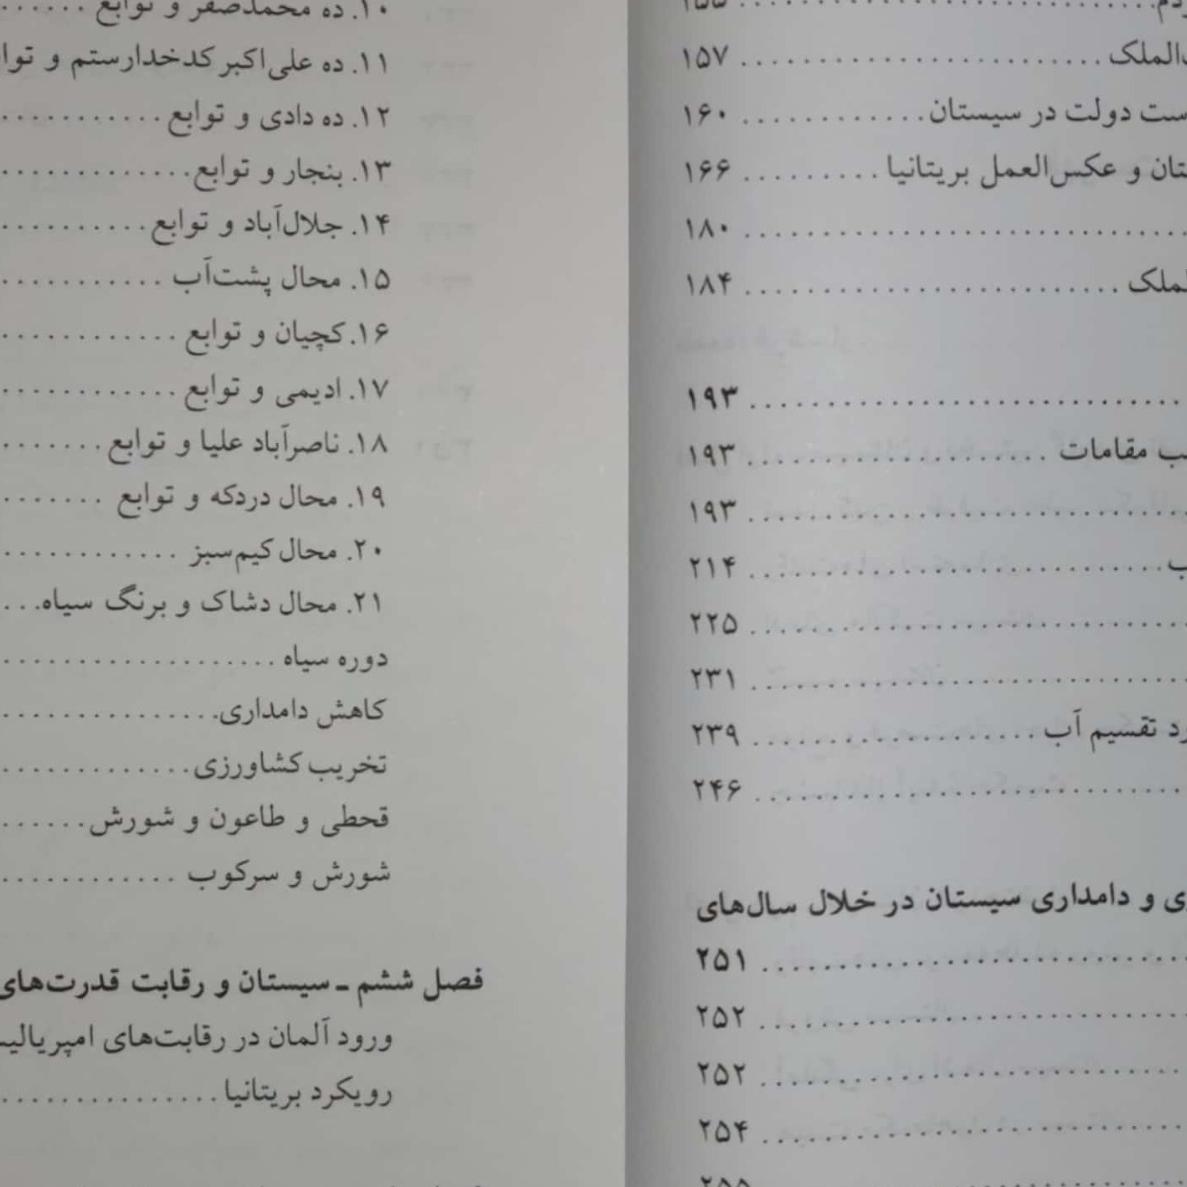 ۱۵۵
الملک ۱۵۷
ست دولت در سیستان ۱۶۰
تان و عکس‌العمل بریتانیا ۱۶۶
۱۸۰
لملک ۱۸۴
۱۹۳
ب مقامات ۱۹۳
۱۹۳
ب ۲۱۴
۲۲۵
۲۳۱
رد تقسیم آب ۲۳۹
۲۴۶
ی و دامداری سیستان در خلال سال‌های
۲۵۱
۲۵۲
۲۵۲
۲۵۴
۲۵۵
۱۰. ده محمدصفر و توابع
۱۱. ده علی‌اکبر کدخدارستم و توا
۱۲. ده دادی و توابع
۱۳. بنجار و توابع
۱۴. جلال‌آباد و توابع
۱۵. محال پشت‌آب
۱۶. کچیان و توابع
۱۷. ادیمی و توابع
۱۸. ناصرآباد علیا و توابع
۱۹. محال دردکه و توابع
۲۰. محال کیم‌سبز
۲۱. محال دشاک و برنگ سیاه
دوره سیاه
کاهش دامداری
تخریب کشاورزی
قحطی و طاعون و شورش
شورش و سرکوب
فصل ششم ـ سیستان و رقابت قدرت‌های
ورود آلمان در رقابت‌های امپریالیـ
رویکرد بریتانیا